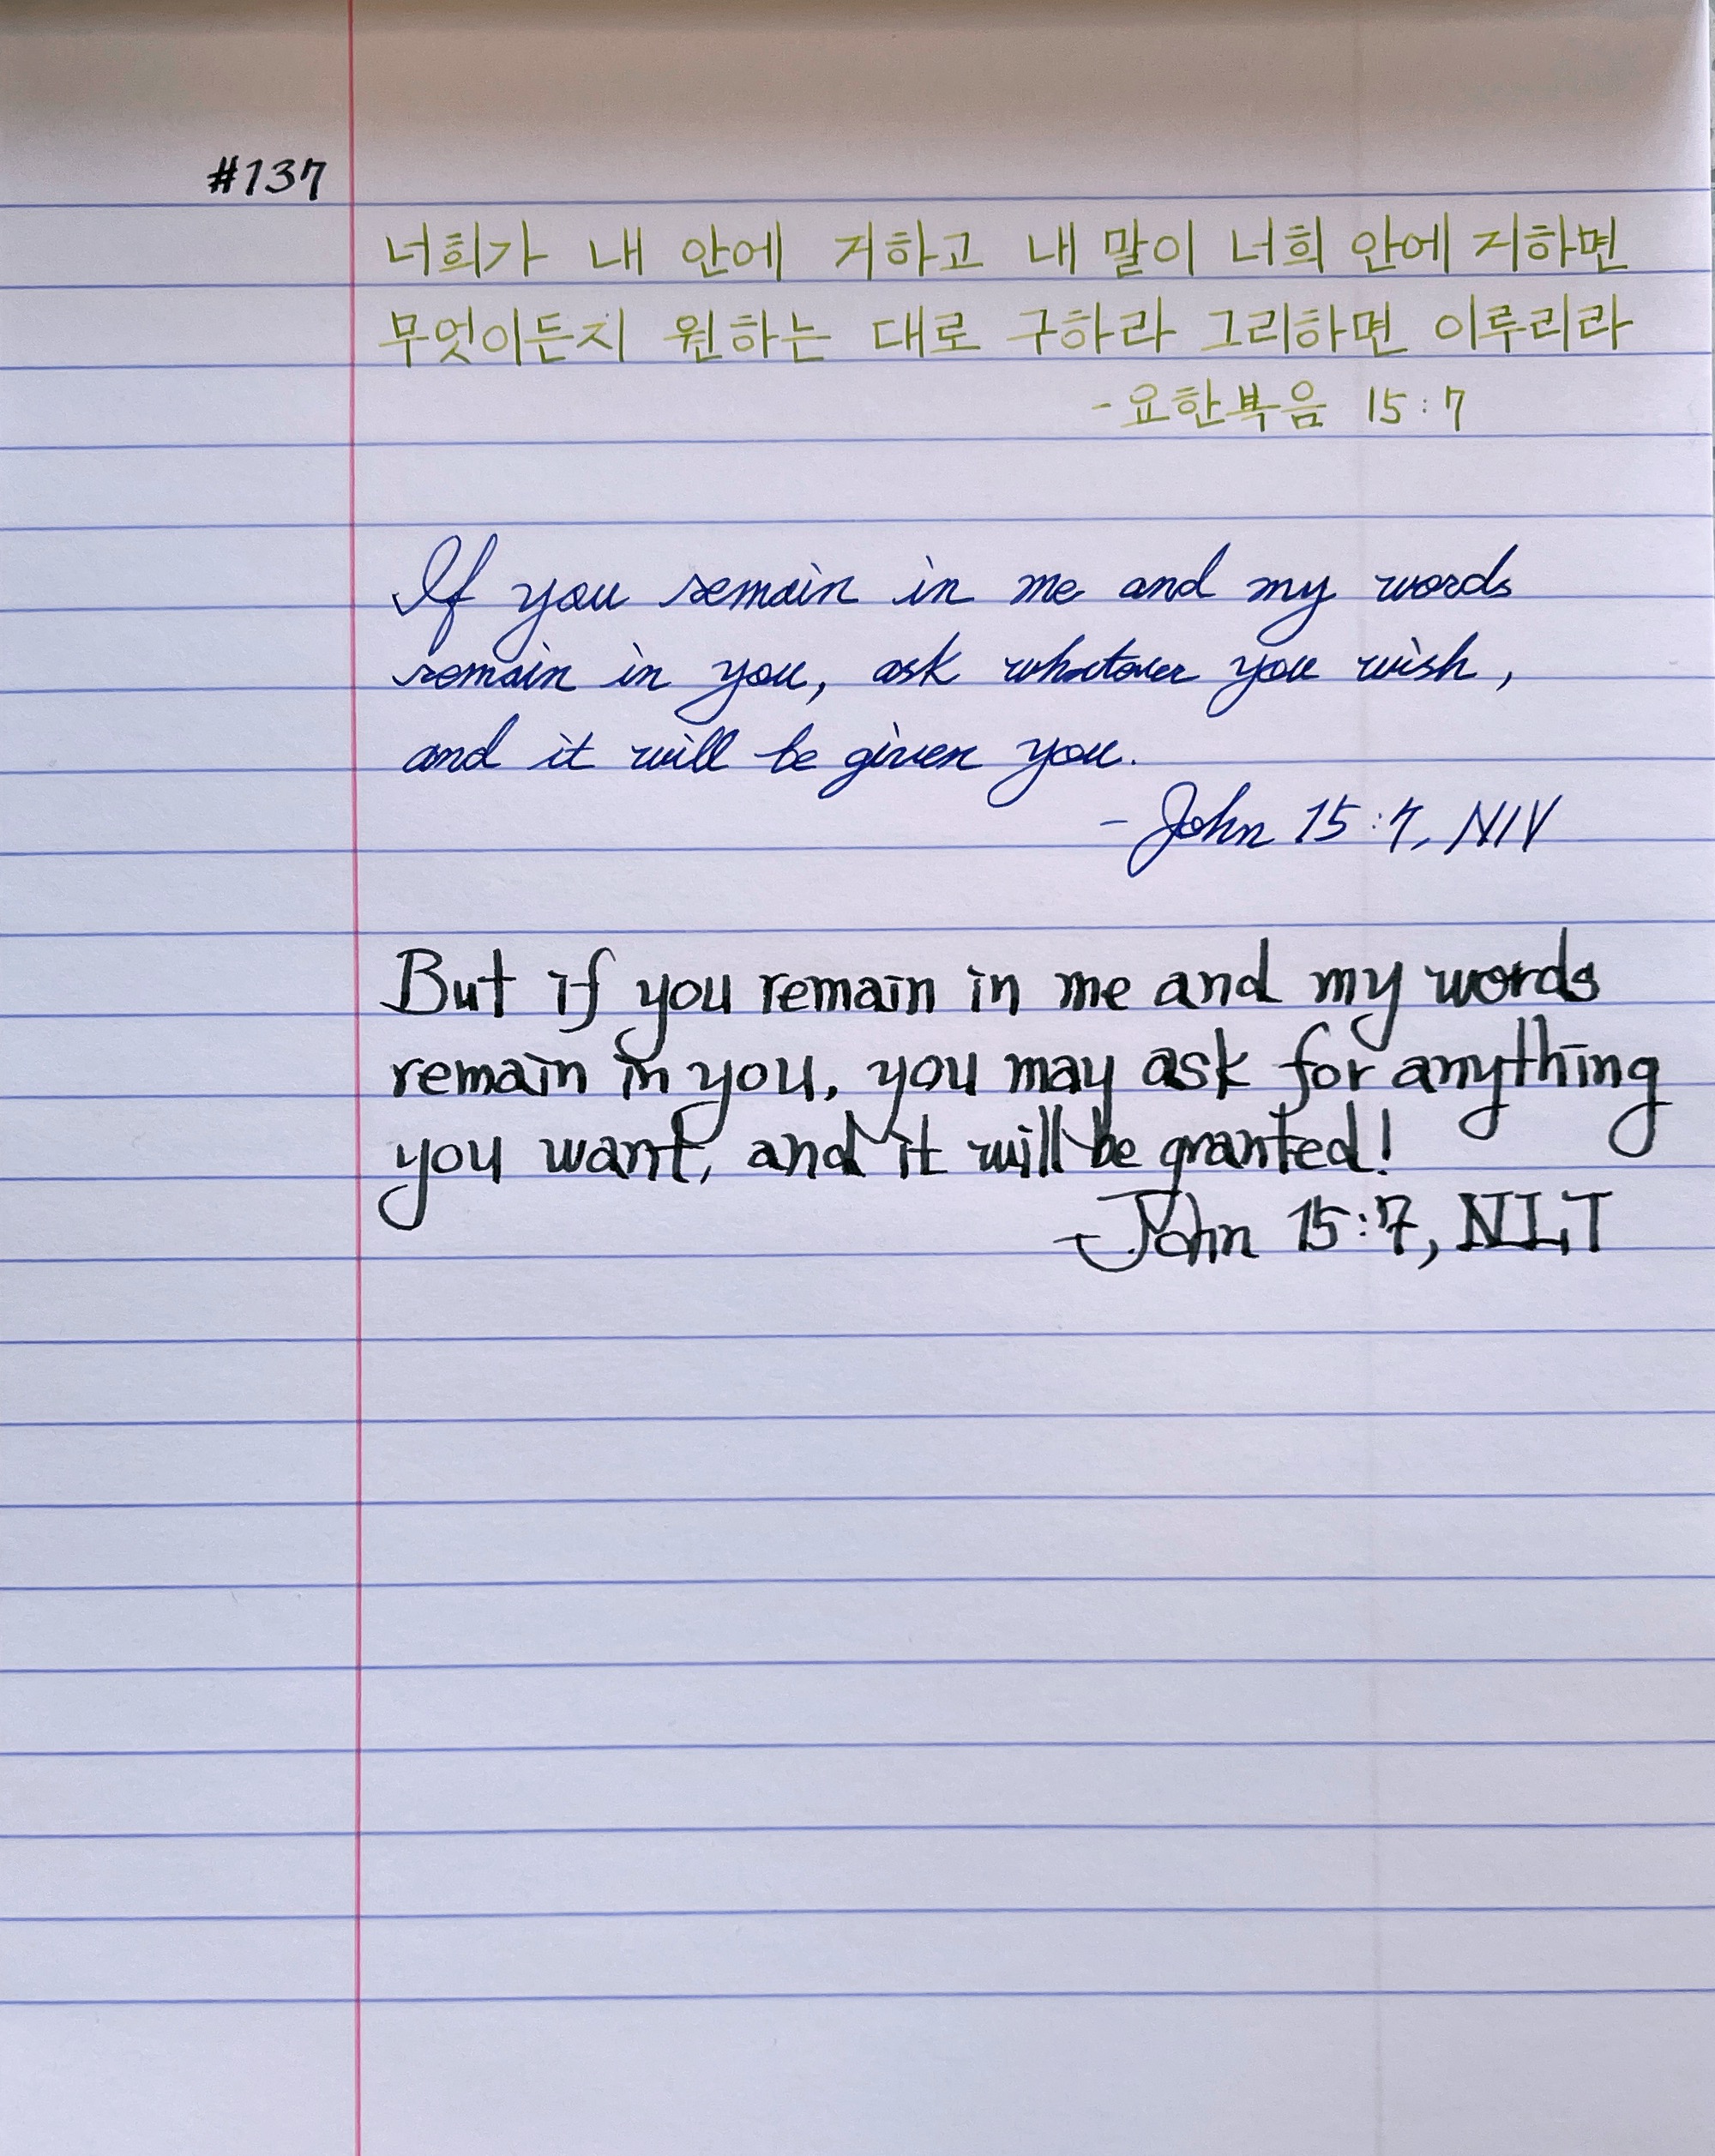 #137
너희가 내 안에 거하고 내 말이 너희 안에 거하면
무엇이든지 원하는 대로 구하라 그리하면 이루리라
- 요한복음 15:7
If you remain in me and my words
remain in you, ask whatever you wish,
and it will be given you.
- John 15:7, NIV
But if you remain in me and my words
remain in you, you may ask for anything
you want, and it will be granted!
- John 15:7, NLT